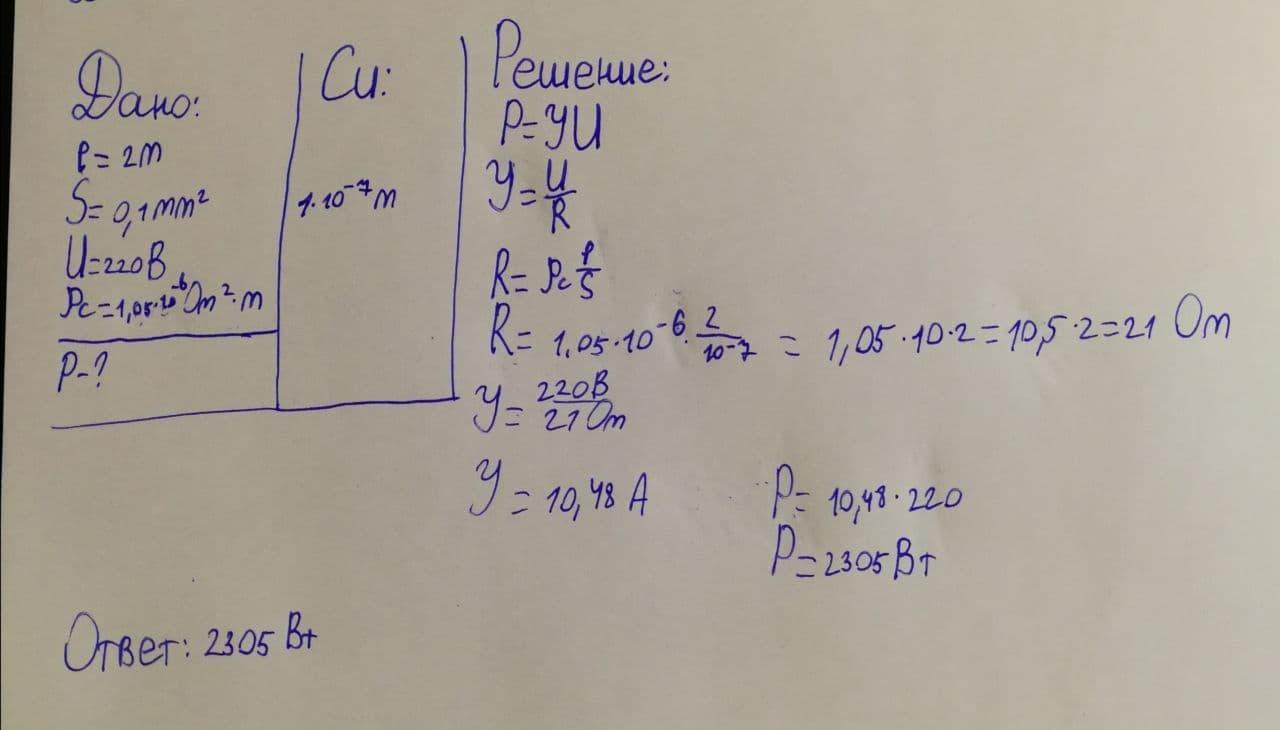 Дано:
ℓ= 2m
S= 0,1mm²
U=220В
ρc=1,05·10⁻⁶Om²·m
P-?
Си:
1·10⁻⁷m
Решение:
P=УU
У=U/R
R= ρc ℓ/S
R= 1,05·10⁻⁶· 2/10⁻⁷ = 1,05·10·2=10,5·2=21 Om
У= 220В/21Om
У= 10,48 А
P= 10,48·220
P=2305Вт
Ответ: 2305 Вт